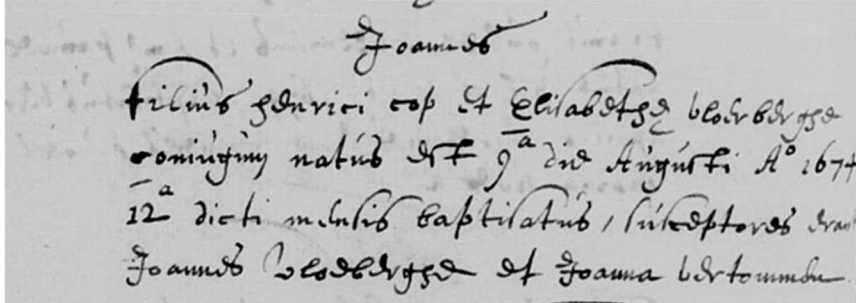 Joannes
filius henrici cop et Elisabethę vloerberghe
coniugum natus est 9a die Augusti Ao 1674
12a dicti mensis baptisatus, susceptores erant
Joannes vloeberghe et Joanna vertommen